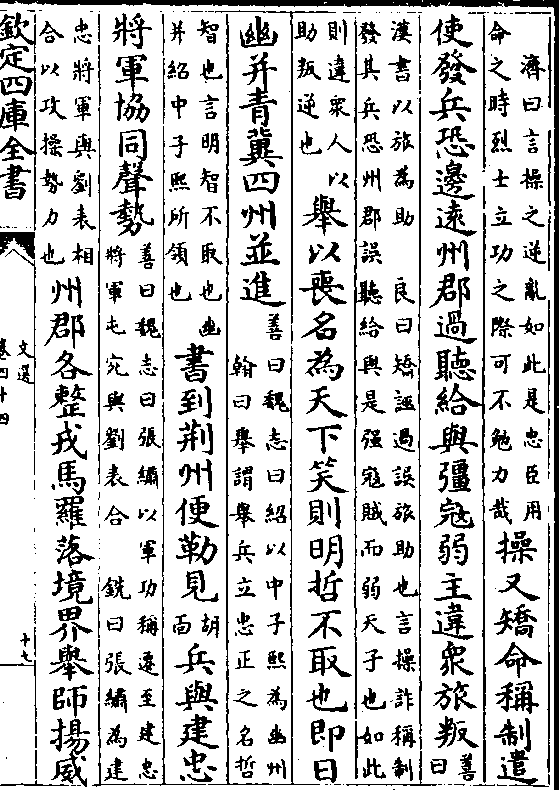 濟曰言操之逆亂如此是忠臣用
命之時烈士立功之際可不勉力哉
操又矯命稱制遣
使發兵恐邊遠州郡過聽給與彊寇弱主違衆旅叛
善曰
漢書以旅為助 良曰矯誣過誤旅助也言操詐稱制
發其兵恐州郡誤聽給與是强寇賊而弱天子也如此
則違衆人以
助叛逆也
舉以喪名為天下笑則明哲不取也即日
幽并青冀四州並進
善曰魏志曰紹以中子熙為幽州
翰曰舉謂舉兵立忠正之名哲
智也言明智不取也幽
并紹中子熙所領也
書到荆州便勒見
胡
面
兵與建忠
將軍協同聲勢
善曰魏志曰張繡以軍功稱遷至建忠
將軍屯宛與劉表合 銑曰張繡為建
忠將軍與劉表相
合以攻操勢力也
州郡各整戎馬羅落境界舉師揚威
欽定四庫全書
文選
卷四十四
十七